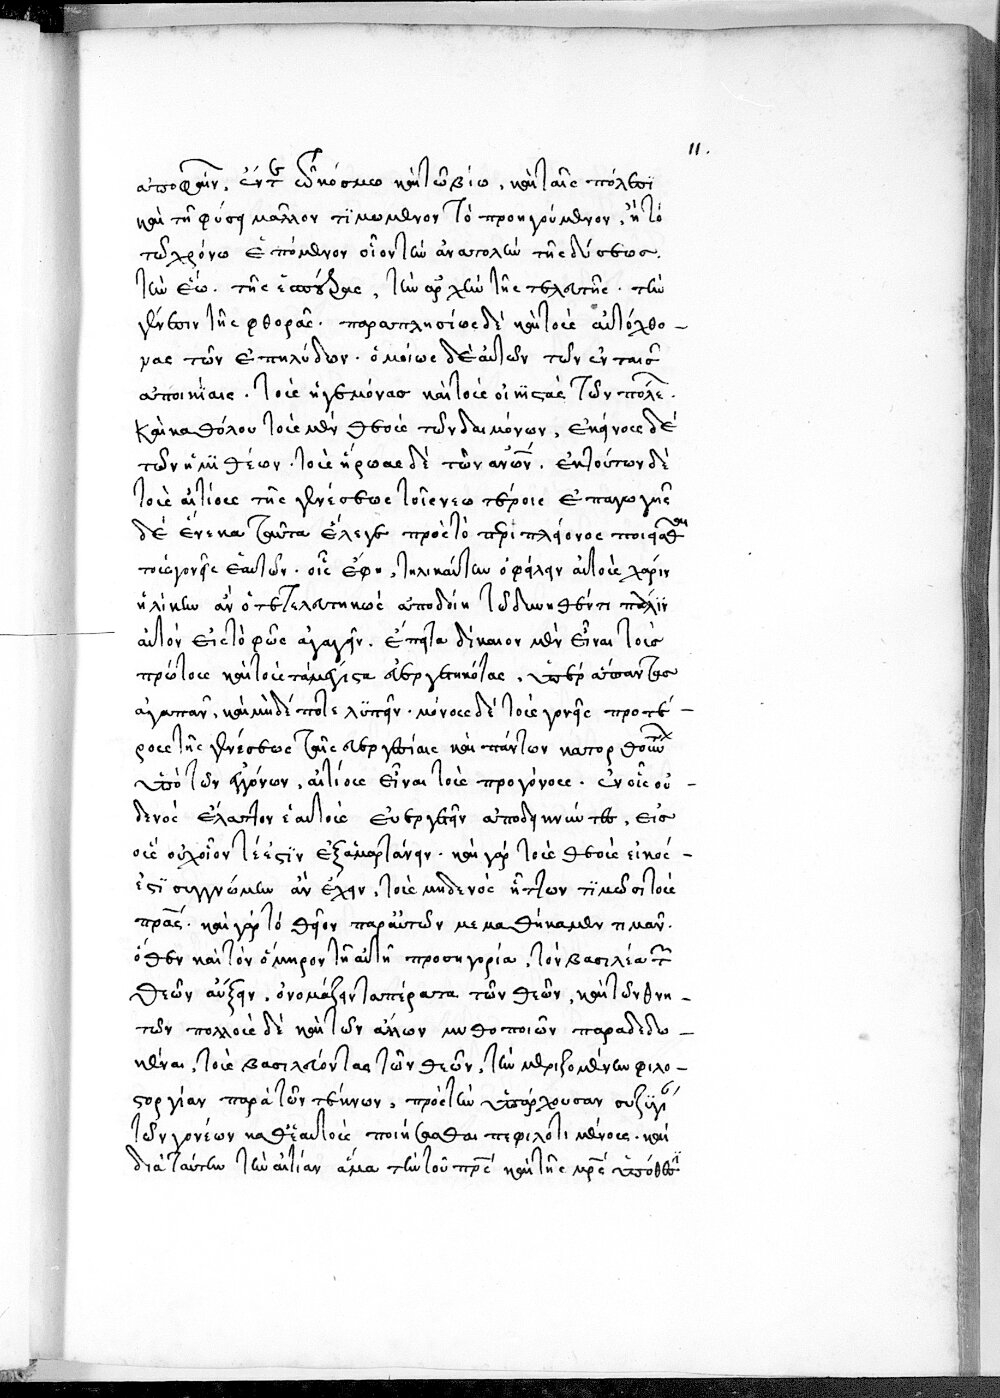 11.
ἀποφαίν. ἔν τ τῷ κόσμῳ καὶ τῷ βίῳ, καὶ ταῖς πόλεσϊ
καὶ τῇ φύσει μᾶλλον τϊμώμενον τὸ προηγούμενον, ἢ τὸ
τῷ χρόνῳ ἑπόμενον οἷον τὴν ἀνατολὴν τῆς δύσεως.
τὴν ἕω. τῆς ἑσπέρας, τὴν ἀρχὴν τῆς τελευτῆς. τὴν
γένεσιν τῆς φθορᾶς. παραπλησίως δὲ καὶ τοὺς αὐτόχθο-
νας τῶν ἐπηλύδων. ὁμοίως δὲ αὐτῶν τῶν ἐν ταῖς
ἀποικίαις. τοὺς ἡγεμόνας καὶ τοὺς οἰκϊστὰς τῶν πόλε.
καὶ καθόλου τοὺς μὲν θεοὺς τῶν δαιμόνων, ἐκείνους δὲ
τῶν ἡμϊθέων. τοὺς ἥρωας δὲ τῶν ἀνων. ἐκ τούτων δὲ
τοὺς αἰτίους τῆς γενέσεως τοῖς νεωτέροις ἐπαγωγῆς
δὲ ἕνεκα ταῦτα ἔλεγε πρὸς τὸ περὶ πλείονος ποιεῖσθαι
τοὺς γονεῖς ἑαυτῶν. οἷς ἔφη, τηλικαύτην ὀφείλειν αὐτοὺς χάριν
ἡλίκην ἂν ὁ τετελευτηκὼς ἀποδοίη τῷ δυνηθέντι πάλϊν
αὐτὸν εἰς τὸ φῶς ἀγαγεῖν. ἔπειτα δίκαιον μὲν εἶναι τοὺς
πρώτους καὶ τοὺς τὰ μέγιστα εὐεργετηκότας, ὑπὲρ ἅπαντας
ἀγαπᾶν, καὶ μηδέποτε λϋπεῖν. μόνους δὲ τοὺς γονεῖς προτέ-
ρους τῆς γενέσεως ταῖς εὐεργεσίαις καὶ πάντων κατορθουμ
ὑπὸ τῶν ἐκγόνων, αἰτίους εἶναι τοὺς προγόνους. ἐν οἷς οὐ-
δενὸς ἔλαττον ἑαυτοὺς εὐεργετεῖν ἀποδεικνύντες, εἰς
οὓς οὐχ οἷόν τέ ἐστϊν ἐξαμαρτάνειν. καὶ γὰρ τοὺς θεοὺς εἰκός-
ἐστϊ συγγνώμην ἂν ἔχειν, τοὺς μηδενὸς ἧττον τϊμῶσι τοὺς
πρας. καὶ γὰρ τὸ θεῖον παρ' αὐτῶν μεμαθήκαμεν τιμᾶν.
ὅθεν καὶ τὸν ὅμηρον τῇ αὐτῇ προσηγορίᾳ, τὸν βασιλέα τ
θεῶν αὔξειν. ὀνομάζειν τὰ πέρατα τῶν θεῶν, καὶ τῶν θνη-
τῶν πολλοὺς δὲ καὶ τῶν ἄλλων μυθοποιῶν παραδεδω-
κέναι, τοὺς βασιλεύοντας τῶν θεῶν, τὴν μεριζομένην φιλο-
στοργίαν παρὰ τῶν τέκνων, πρὸς τὴν ὑπάρχουσαν συζϋγί
τῶν γονέων καθ' ἑαυτοὺς ποιήσασθαι πεφιλοτιμένοις. καὶ
διὰ ταύτην τὴν αἰτίαν ἅμα τὴν τοῦ πρς καὶ τῆς μρς ὑπόθεσϊ